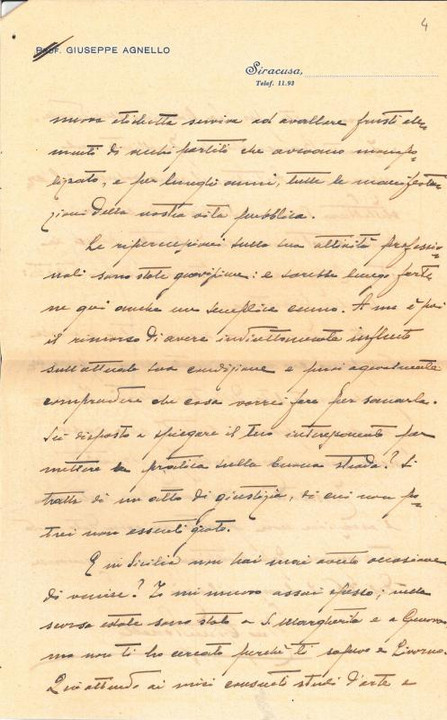 4
PROF. GIUSEPPE AGNELLO
Siracusa,
Telef. 11.93
nuova etichetta serviva ad avallare frusti ele-
menti di vecchi partiti che avevano monopo-
lizzato, e per lunghi anni, tutte le manifesta-
zioni della nostra vita pubblica.
Le ripercussioni sulla sua attività professio-
nale sono state gravissime: e sarebbe lungo far-
ne qui anche un semplice cenno. A me è poi
il rimorso di avere indirettamente influito
sull'attuale sua condizione e puoi agevolmente
comprendere che cosa vorrei fare per sanarla.
Sei disposto a spiegare il tuo interessamento per
mettere la pratica sulla buona strada? Si
tratta di un atto di giustizia, di cui non po-
trei non esserti grato.
E in Sicilia non hai mai avuto occasione
di venire? Io mi muovo assai spesso; nella
scorsa estate sono stato a S. Margherita e a Genova
ma non ti ho cercato perché ti sapevo a Livorno.
Qui attendo ai miei consueti studi d'arte e